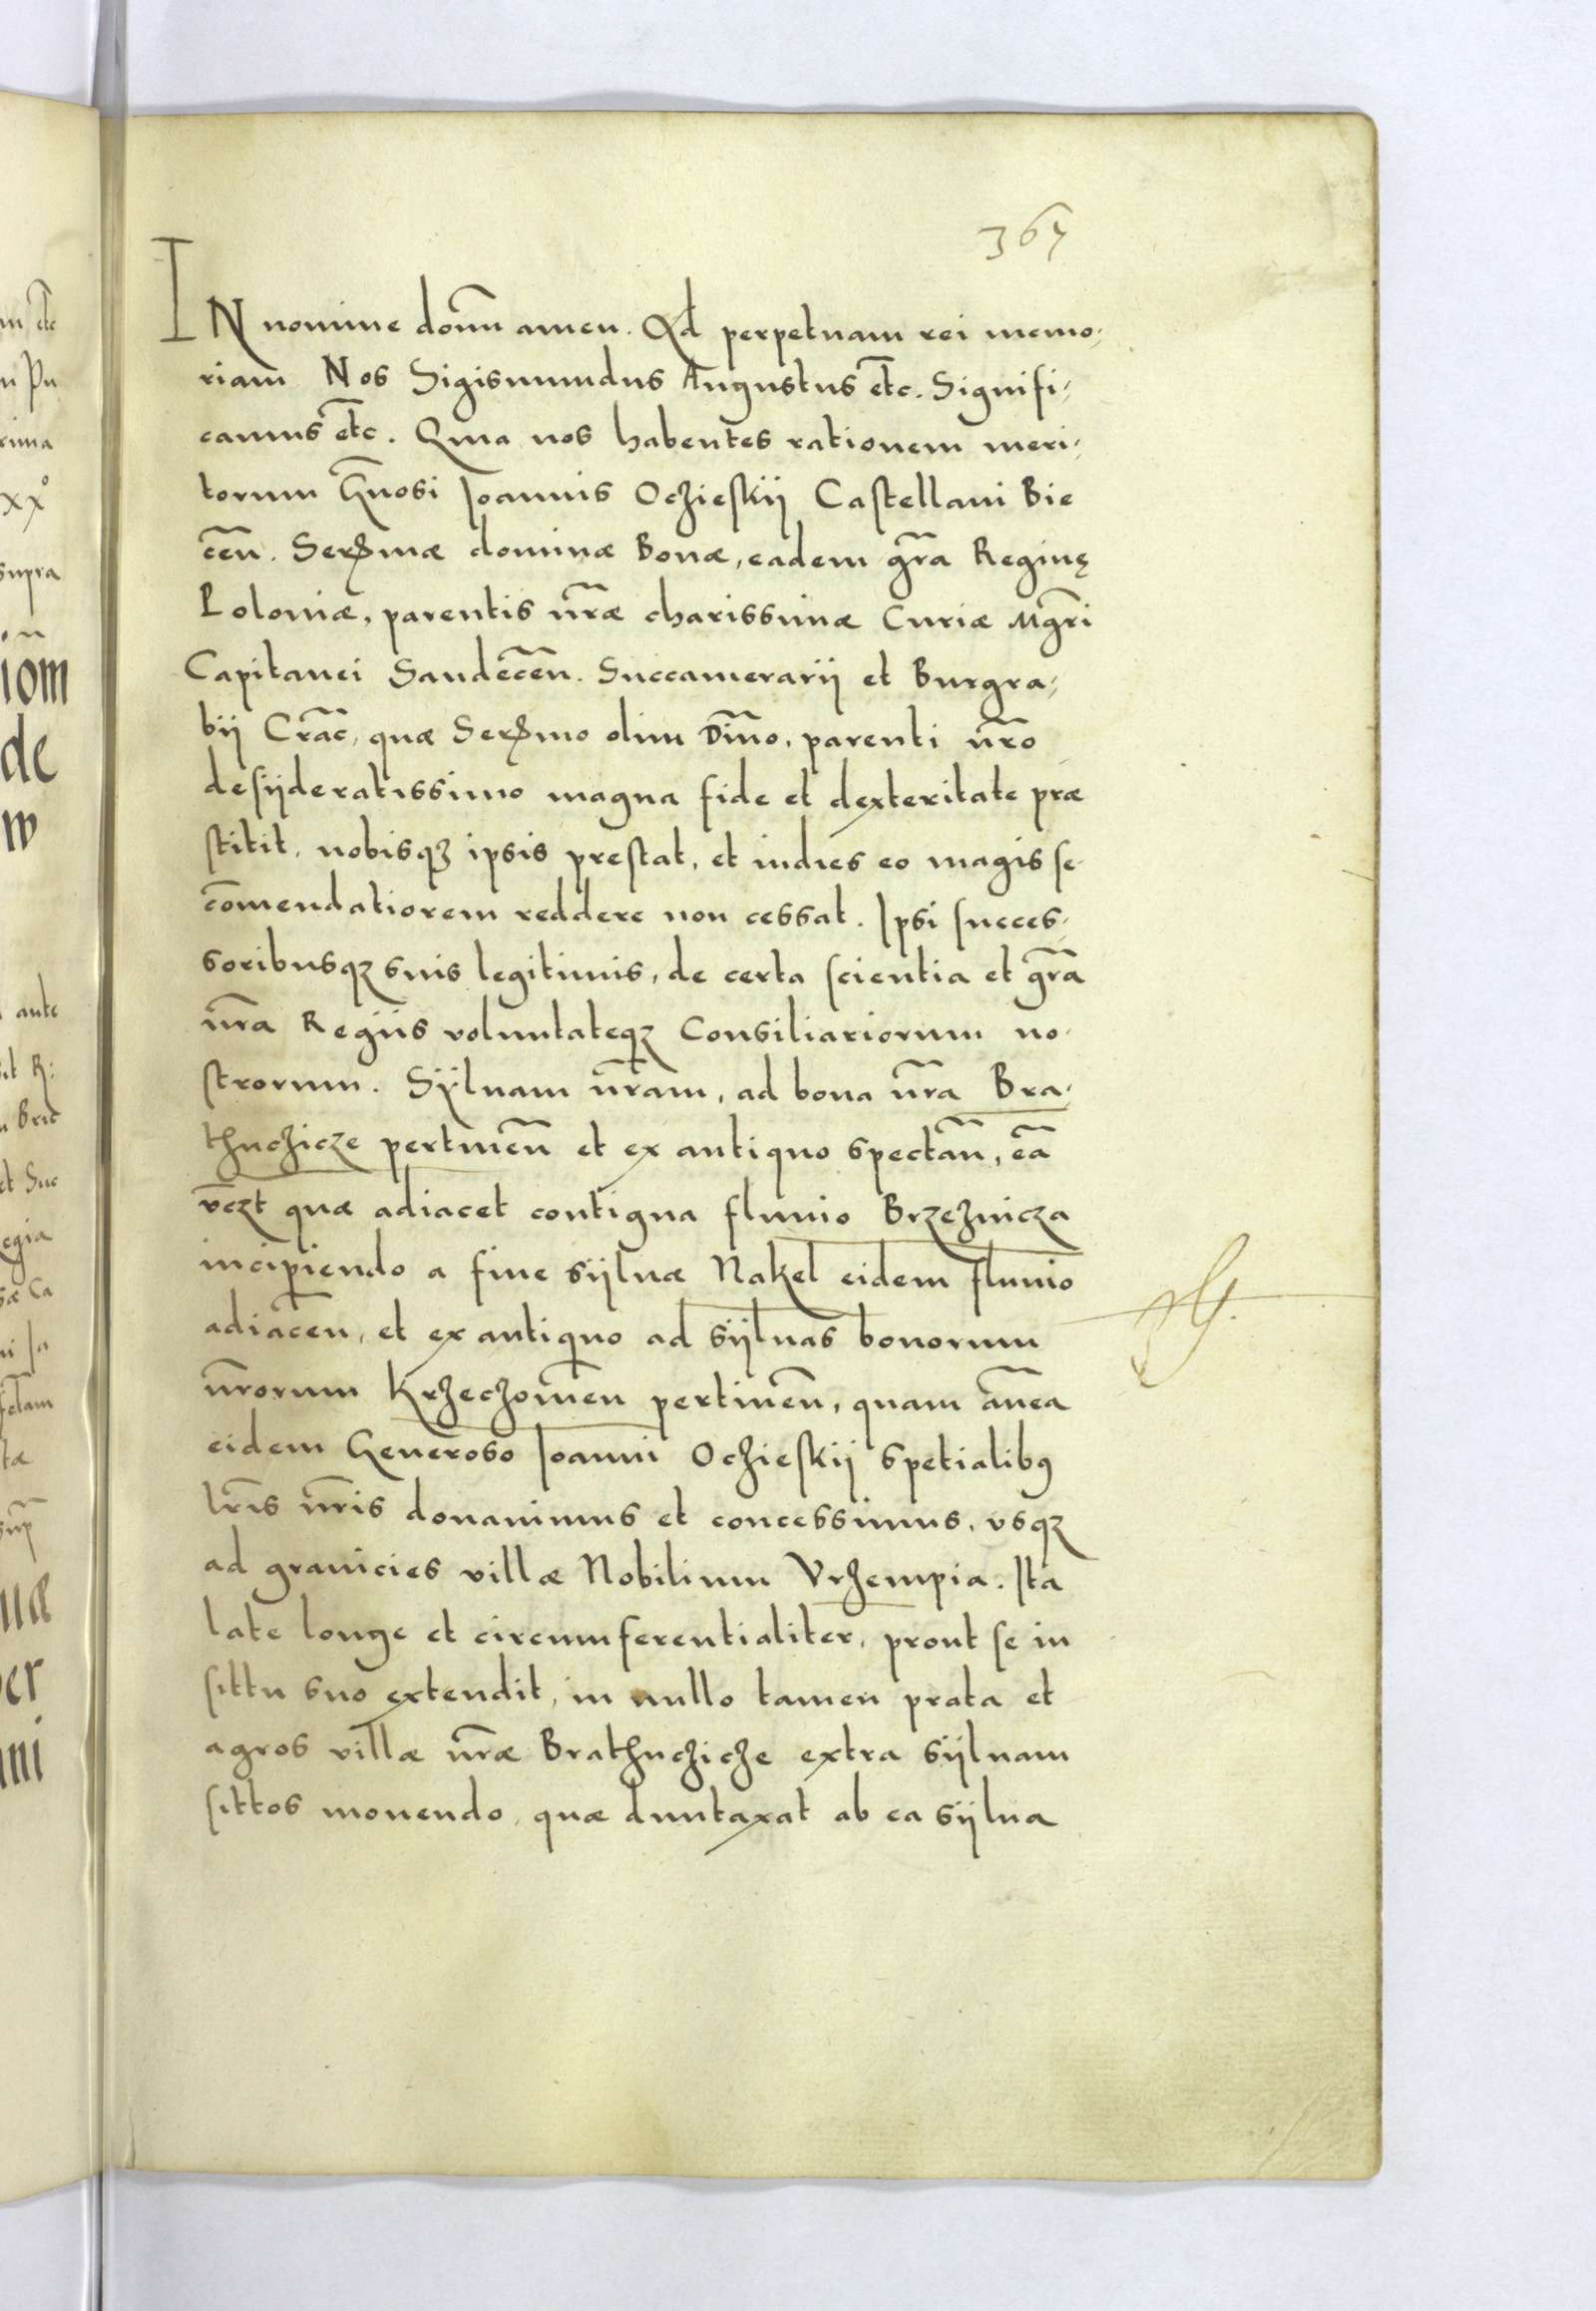 367
IN nomine domī amen. Ad perpetuam rei memo-
riam Nos Sigismundus Augustus etc. Signifi-
camus etc. Quia nos habentes rationem meri-
torum Gn̄osi Joannis Oczieskij Castellani Bie
cen̄. Serēmæ dominæ Bonæ, eadem gr̄a Reginę
Poloniæ, parentis nr̄æ charissimæ Curiæ Mgr̄i
Capitanei Sandecen̄. Succamerarij et Burgra-
bij Crac̄, quæ Serēmo olim Dn̄o, parenti nr̄o
desijderatissimo magna fide et dexteritate præ
stitit, nobisq₃ ipsis prestat, et indies eo magis se
com̄endatiorem reddere non cessat. Ipsi succes-
soribusq₃ suis legitimis, de certa scientia et gr̄a
nr̄a Regijs voluntateq₃ Consiliariorum no-
strorum. Sÿluam nr̄am, ad bona nr̄a Bra-
thuczicze pertinen̄ et ex antiquo spectan̄, eā
vc̄zt quæ adiacet contigua fluuio Brzeznicza
incipiendo a fine sijluæ Nakel eidem fluuio
adiacen̄, et ex antiquo ad sijluas bonorum
nr̄orum Krzeczowien̄ pertinen̄, quam an̄ea
eidem Generoso Joanni Oczieskij spetialibꝰ
lr̄is nr̄is donauimus et concessimus, vsq₃
ad granicies villæ Nobilium Vrzempia. Ita
late longe et circumferentialiter, prout se in
sittu suo extendit, in nullo tamen prata et
agros villæ nr̄æ Brathucziche extra sijluam
sittos mouendo, quæ duntaxat ab ea sijlua